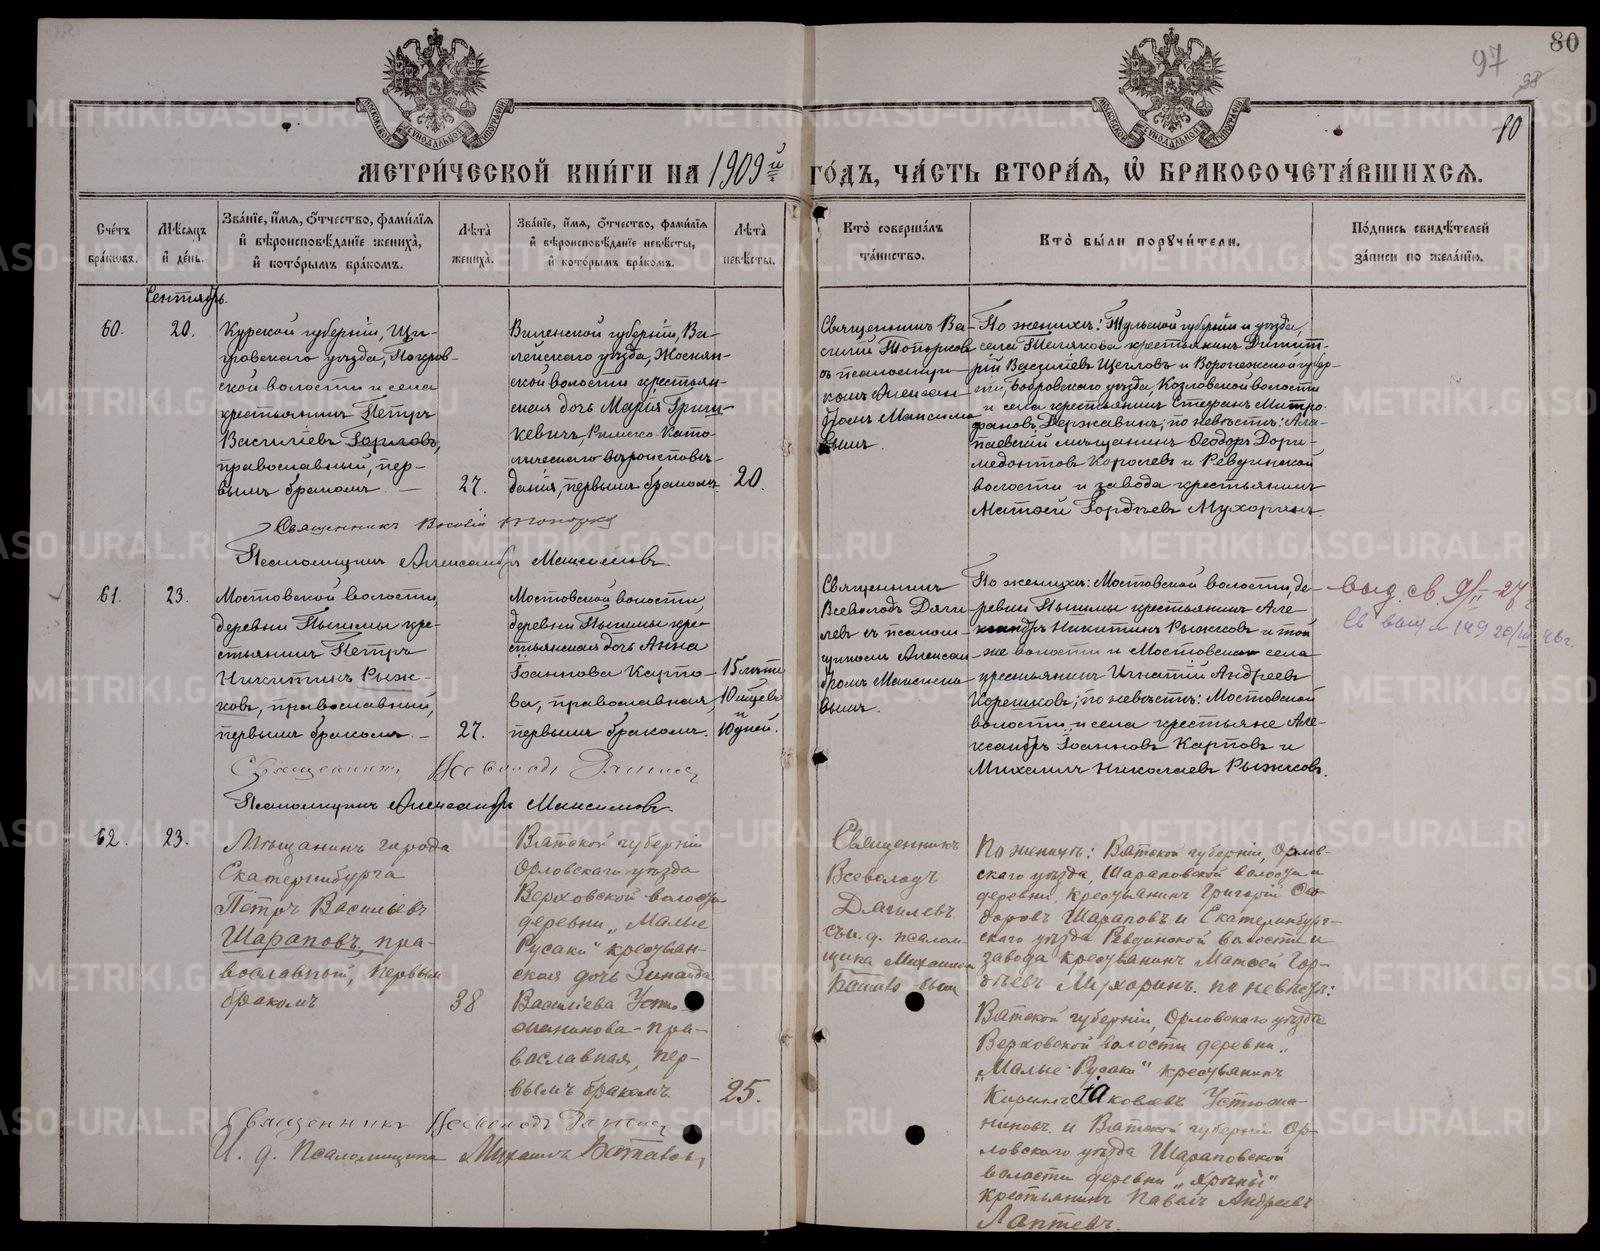 80
97
98
80
МЕТРИ́ЧЕСКОЙ КНИ́ГИ НА 1909й ГО́ДЪ, ЧА́СТЬ ВТОРА́Я, Ѡ БРАКОСОЧЕТА́ВШИХСЯ.
Сче́тъ бра́ковъ.
Мѣ́сяцъ и҆ де́нь.
Зва́нїе, и҆́мя, о҆́тчество, фами́лїя и҆ вѣроисповѣ́данїе жениха̀, и҆ кото́рымъ бра́комъ.
Лѣ́та жениха̀.
Зва́нїе, и҆́мя, о҆́тчество, фами́лїя и҆ вѣроисповѣ́данїе невѣ́сты, и҆ кото́рымъ бра́комъ.
Лѣ́та невѣ́сты.
Кто̀ соверша́лъ та́инство.
Кто̀ бы́ли поручи́тели.
По́дпись свидѣ́телей за́писи по жела́нїю.
Сентябрь.
60.
20.
Курской губерніи, Щи-
гровскаго уѣзда, Покров-
ской волости и села
крестьянинъ Петръ
Васильевъ Горловъ,
православный, пер-
вымъ бракомъ. —
27.
Виленской губерніи, Ви-
лейскаго уѣзда, Жоснян-
ской волости крестьян-
ская дочь Марія Гриц-
кевичъ, Римско-Като-
лическаго вѣроисповѣ-
данія, первымъ бракомъ.
20.
Священникъ Ва-
силій Топорковъ
съ псаломщи-
комъ Алексан-
дромъ Максимо-
вымъ.
По женихѣ: Тульской губерніи и уѣзда,
села Телякова крестьянинъ Димит-
рій Васильевъ Щегловъ и Воронежской губер-
ніи, Бобровскаго уѣзда, Козловской волости
и села крестьянинъ Стефанъ Митро-
фановъ Державинъ; по невѣстѣ: Ала-
паевскій мѣщанинъ Ѳеодоръ Дори-
медонтовъ Королевъ и Ревдинской
волости и завода крестьянинъ
Матѳей Гордѣевъ Мухоринъ.
Священникъ Василій Топорковъ
Псаломщикъ Александръ Максимовъ.
61.
23.
Мостовской волости,
деревни Пышмы кре-
стьянинъ Петръ
Никитинъ Рыж-
ковъ, православный,
первымъ бракомъ. —
27.
Мостовской волости,
деревни Пышмы кре-
стьянская дочь Анна
Іоаннова Карпо-
ва, православная,
первымъ бракомъ.
15 лѣтъ
10 мѣсяцевъ
и
10 дней.
Священникъ
Всеволодъ Дяги-
левъ съ псалом-
щикомъ Алексан-
дромъ Максимо-
вымъ.
По женихѣ: Мостовской волости, де-
ревни Пышмы крестьянинъ Але-
ксандръ Никитинъ Рыжковъ и той
же волости и Мостовскаго села
крестьянинъ Игнатій Андреевъ
Корешковъ; по невѣстѣ: Мостовской
волости и села крестьяне Але-
ксандръ Іоанновъ Карповъ и
Михаилъ Николаевъ Рыжковъ.
выд. св. 9/II-27 г.
Св выд № 149 20/III 46 г.
Священникъ Всеволодъ Дягилевъ
Псаломщикъ Александръ Максимовъ.
62.
23.
Мѣщанинъ города
Екатеринбурга
Петръ Васильевъ
Шараповъ, пра-
вославный, первым
бракомъ
38
Вятской губерніи
Орловскаго уѣзда
Верховской волости
деревни „Малые
Русаки" крестьян-
ская дочь Зинаида
Васильева Устю-
жанинова - пра-
вославная, пер-
вымъ бракомъ.
25.
Священникъ
Всеволодъ
Дягилевъ
съ и. д. псалом-
щика Михаиломъ
Батаев-ымъ
По женихѣ: Вятской губерніи, Орлов-
скаго уѣзда, Шараповской волости и
деревни, крестьянинъ Григорій Си-
доровъ Шараповъ и Екатеринбург-
скаго уѣзда Ревдинской волости и
завода крестьянинъ Матѳей Гор-
дѣевъ Мухоринъ. по невѣстѣ:
Вятской губерніи, Орловскаго уѣзда
Верховской волости деревни
„Малые Русаки" крестьянинъ
Кирилъ Іаковлевъ Устюжа-
ниновъ и Вятской губерніи Ор-
ловскаго уѣзда Шараповской
волости деревни „Ярчны"
крестьянинъ Павелъ Андреевъ
Лаптевъ.
Священникъ Всеволодъ Дягилевъ
И. д. Псаломщика Михаилъ Батаевъ
METRIKI.GASO-URAL.RU